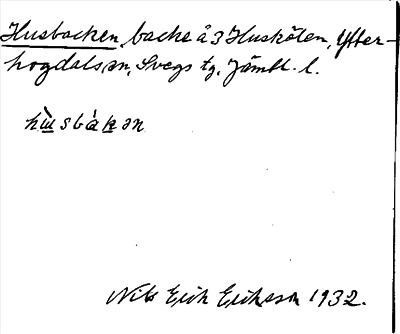 Husbacken, backe å 3 Huskölen, Ytter-
hogdals sn, Svegs tg, Jämtl. l.
hùsbàkən
Nils Erik Eriksson 1932.